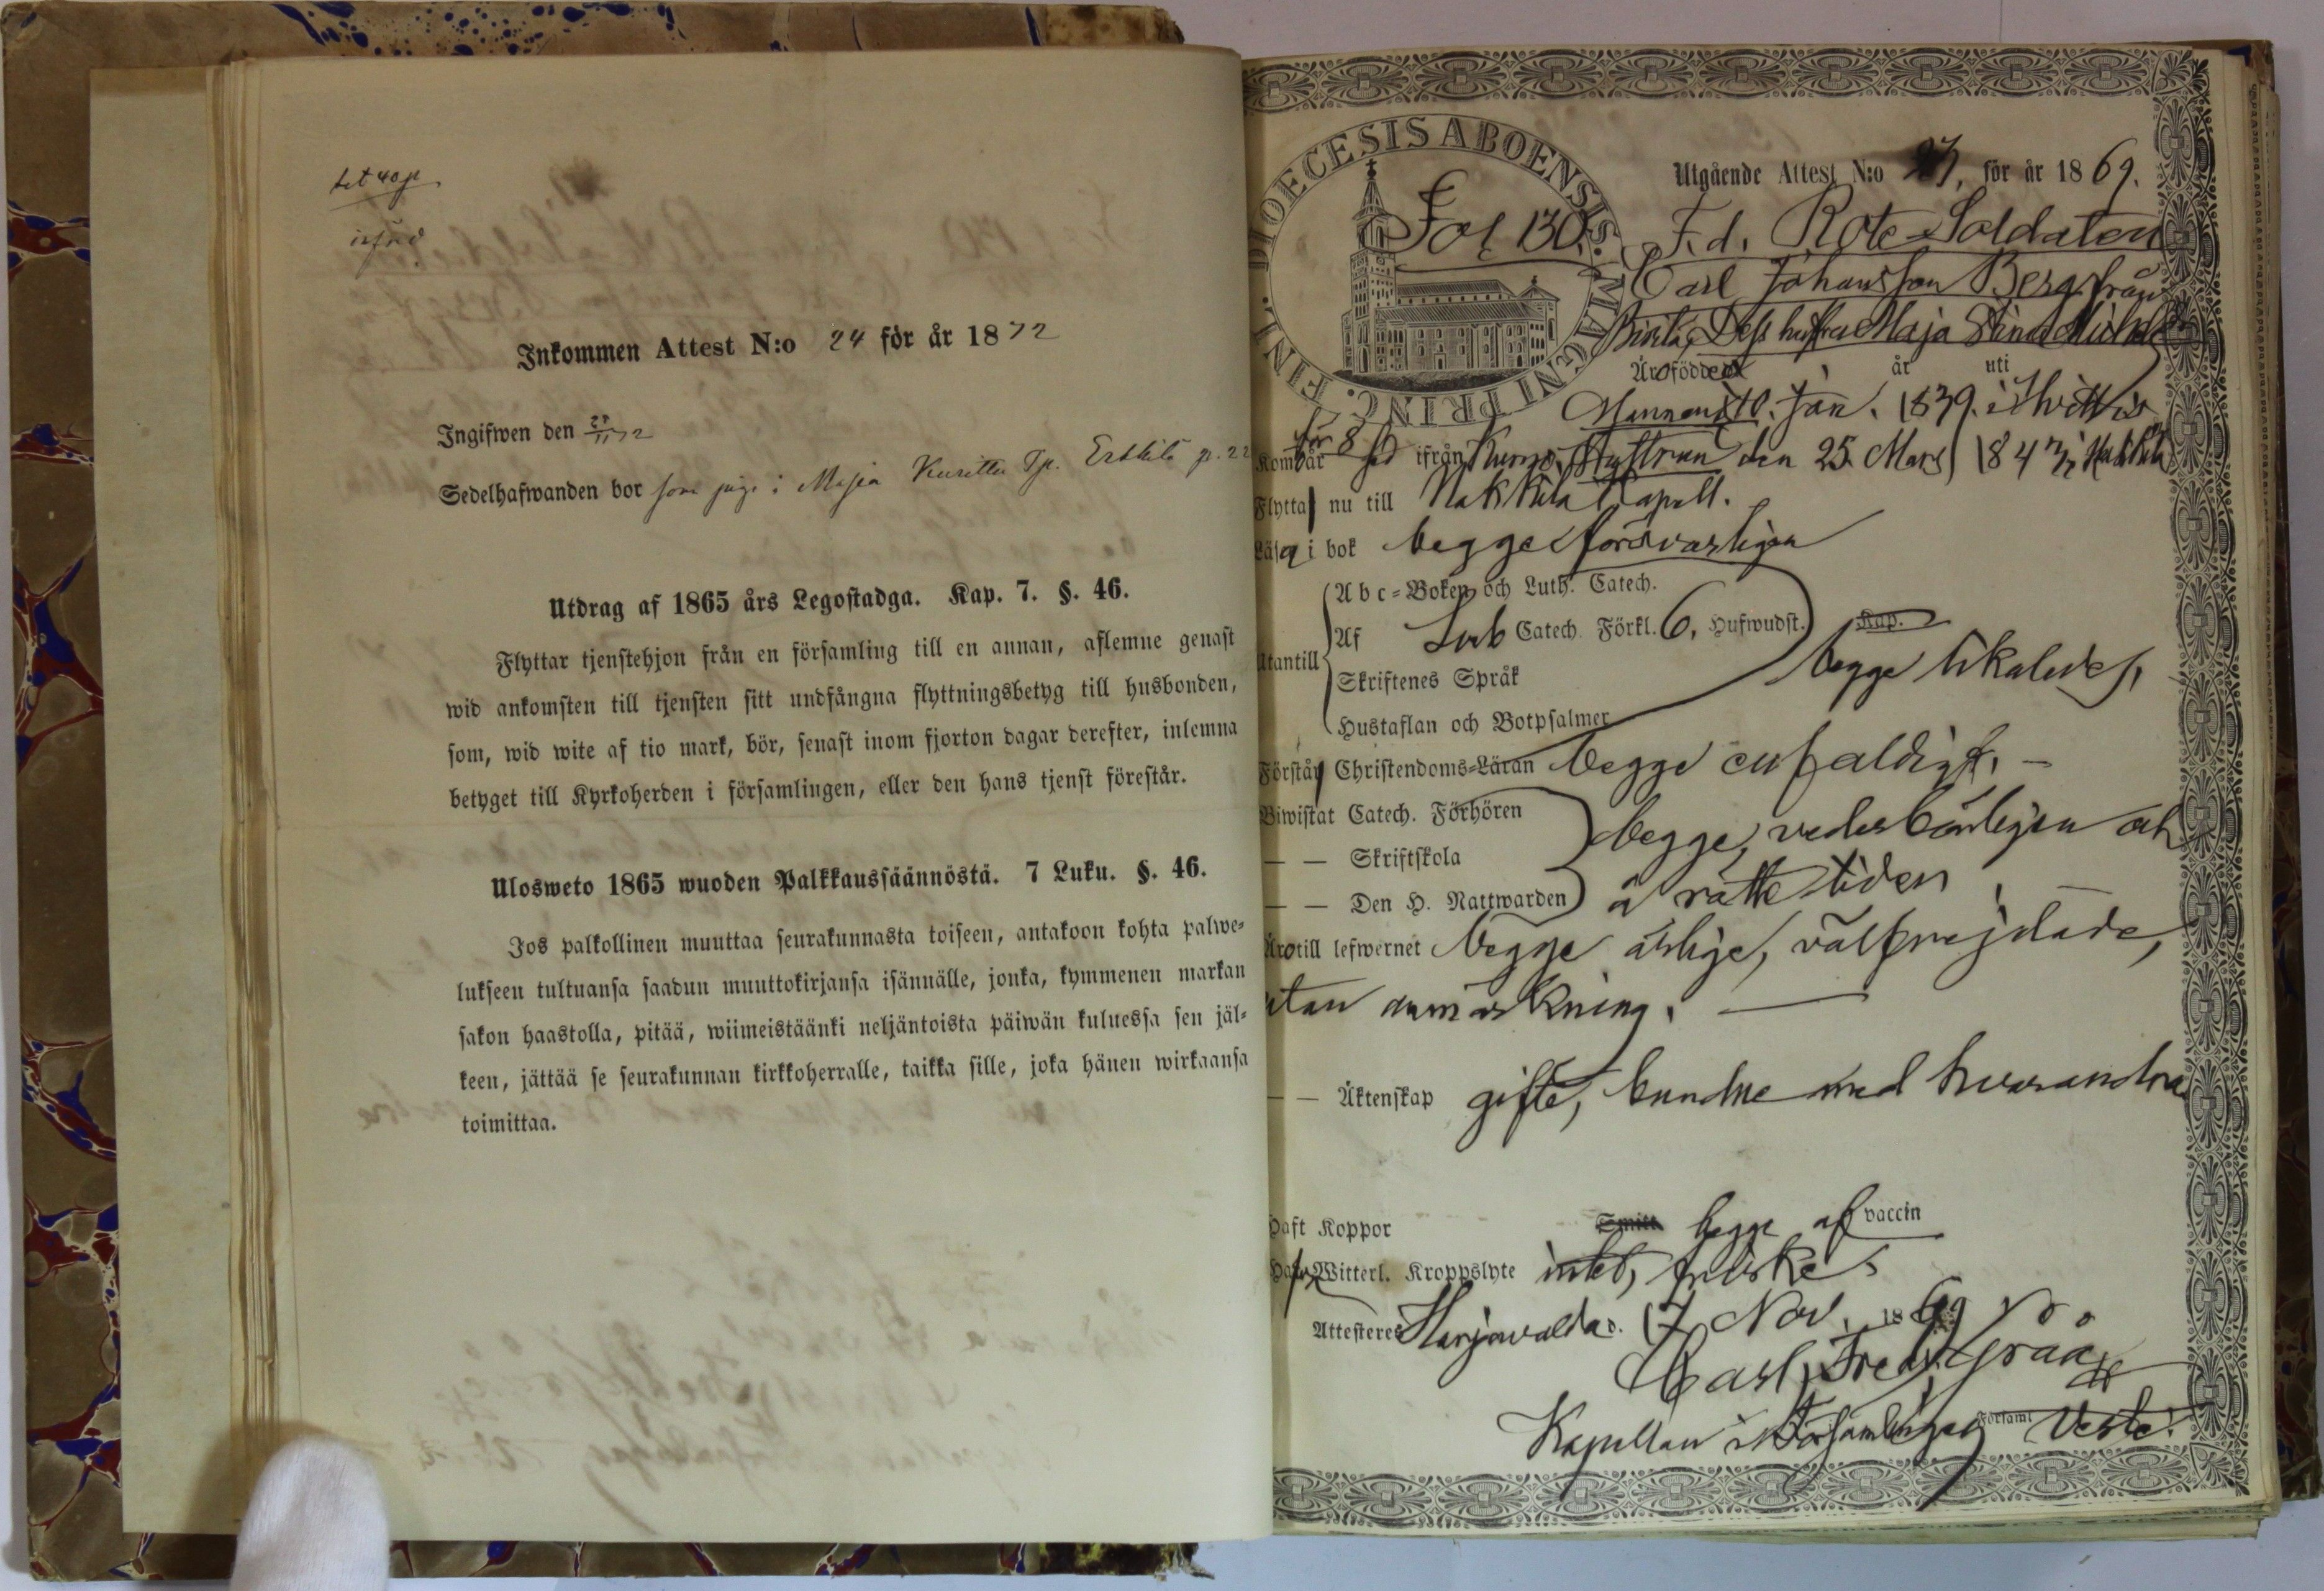 Inkommen Attest N:o 24 för år 1872
Ingifwen den 27/11 72
Sedelhafwanden bor som piga i Maja
Utdrag af 1865 års Legostadga. Kap. 7. §. 46.
Flyttar tjenstehjon från en församling till en annan, aflemne genast
wid ankomsten till tjensten sitt undfångna flyttningsbetyg till husbonden,
som, wid wite af tio mark, bör, senast inom fjorton dagar derefter, inlemna
betyget till Kyrkoherden i församlingen, eller den hans tjenst förestår.
Ulosweto 1865 wuoden Palkkaussäännöstä. 7 Luku. §. 46.
Jos palkollinen muuttaa seurakunnasta toiseen, antakoon kohta palwe=
lukseen tultuansa saadun muuttokirjansa isännälle, jonka, kymmenen markan
sakon haastolla, pitää, wiimeistäänki neljäntoista päiwän kuluessa sen jäl=
keen, jättää se seurakunnan kirkkoherralle, taikka sille, joka hänen wirkaansa
toimittaa.
DIOECESIS ABOENSIS. MAGNI PRINC. FINL.
Fol 130.
Utgående Attest N:o 27, för år 1869.
F.d. Rote Soldaten
Carl Johansson Berg från
Dess hustru Maja Stina
Äro födde år uti
Mannen d 10. Jan. 1839. i Hvittis
Kom för 8 år ifrån Kumo, Hustrun den 25 Mars 1843 i Nakkila
Flytta nu till Nakkila Kapell.
Läsa i bok begge försvarligen
Abc=Boken och Luth. Catech.
Af Catech. Förkl. 6. Hufwudst. Kap.
Utantill
begge likaledes,
Skriftenes Språk
Hustaflan och Botpsalmer
Förstå Christendoms=Läran begge enfaldigt. —
Biwistat Catech. Förhören
begge, vederbörligen och
— — Skriftskola
— — Den H. Nattwarden
å rätte tiden
Äro till lefwernet begge ärlige, välfrejdade,
utan anmärkning. —
— — Äktenskap gifte, bundne med hvarandra
Haft Koppor Smitt begge af vaccin
Witterl. Kroppslyte intet, friske
Attesteres Harjavalda d. 17 Nov. 1869
Carl Fredr. Grå
Kapellan i Församlingen Församl.